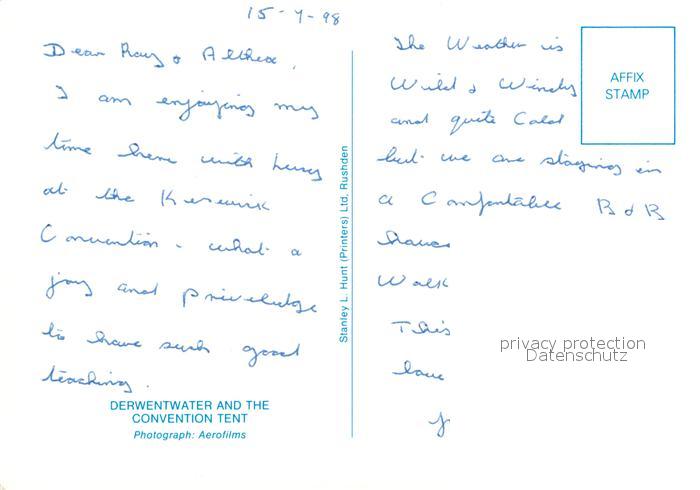 15-7-98
Dear Ray & Althea,
I am enjoying my
time here with Lucy
at the Keswick
Convention - what a
joy and priveledge
to have such good
teaching.
DERWENTWATER AND THE
CONVENTION TENT
Photograph: Aerofilms
Stanley L. Hunt (Printers) Ltd, Rushden
The Weather is
Wild & Windy
and quite Cold
but we are staying in
a Comfortable B & B
have
Walk
This
love
J
AFFIX
STAMP
privacy protection
Datenschutz